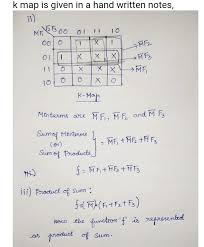 k map is given in a hand written notes,
ii)
00 01 11 10
00 0 1 X 1
→ M̅F2
01 0 1 X 1
→ M̅F3
11 X X X
→ M̅F1
10 0 0 X 0
K-Map
Minterms are M̅F1, M̅F2 and M̅F3
Sum of Minterms
(or)
Sum of Products
= M̅F1+M̅F2+M̅F3
f = M̅F1+M̅F2+M̅F3
iii) Product of Sum :
f = M̅ (F1+F2+F3)
Here the function f is represented
as product of sum.